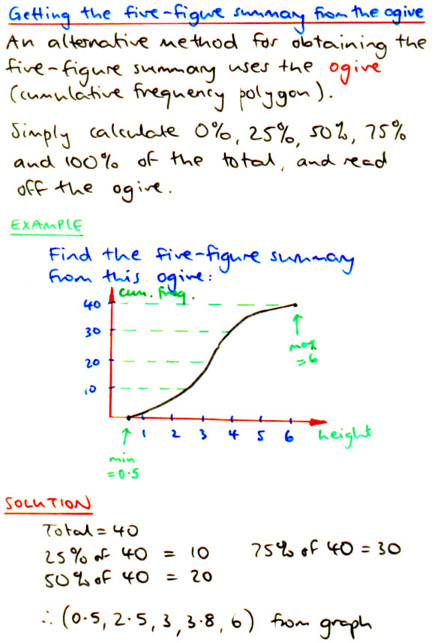 Getting the five-figure summary from the ogive
An alternative method for obtaining the
five-figure summary uses the ogive
(cumulative frequency polygon).
Simply calculate 0%, 25%, 50%, 75%
and 100% of the total, and read
off the ogive.
EXAMPLE
Find the five-figure summary
from this ogive:
cum. freq.
40
30
20
10
max
=6
1 2 3 4 5 6 height
min
=0.5
SOLUTION
Total = 40
25% of 40 = 10 75% of 40 = 30
50% of 40 = 20
∴ (0.5, 2.5, 3, 3.8, 6) from graph